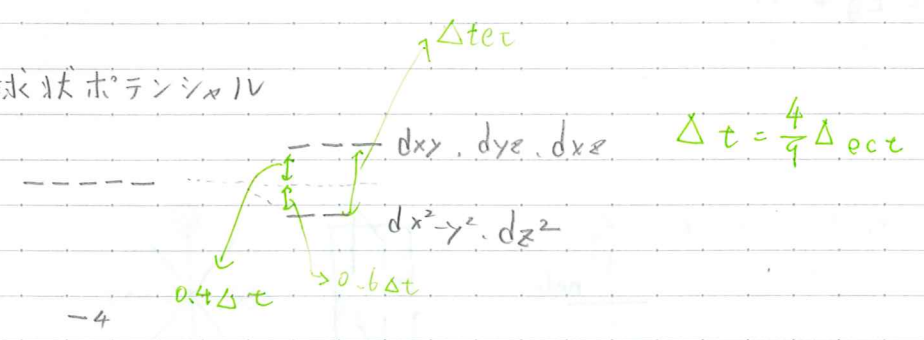 Δtet
球状ポテンシャル
dxy, dyz, dxz
Δt = 4/9 Δoct
dx²-y², dz²
0.4Δt
0.6Δt
-4